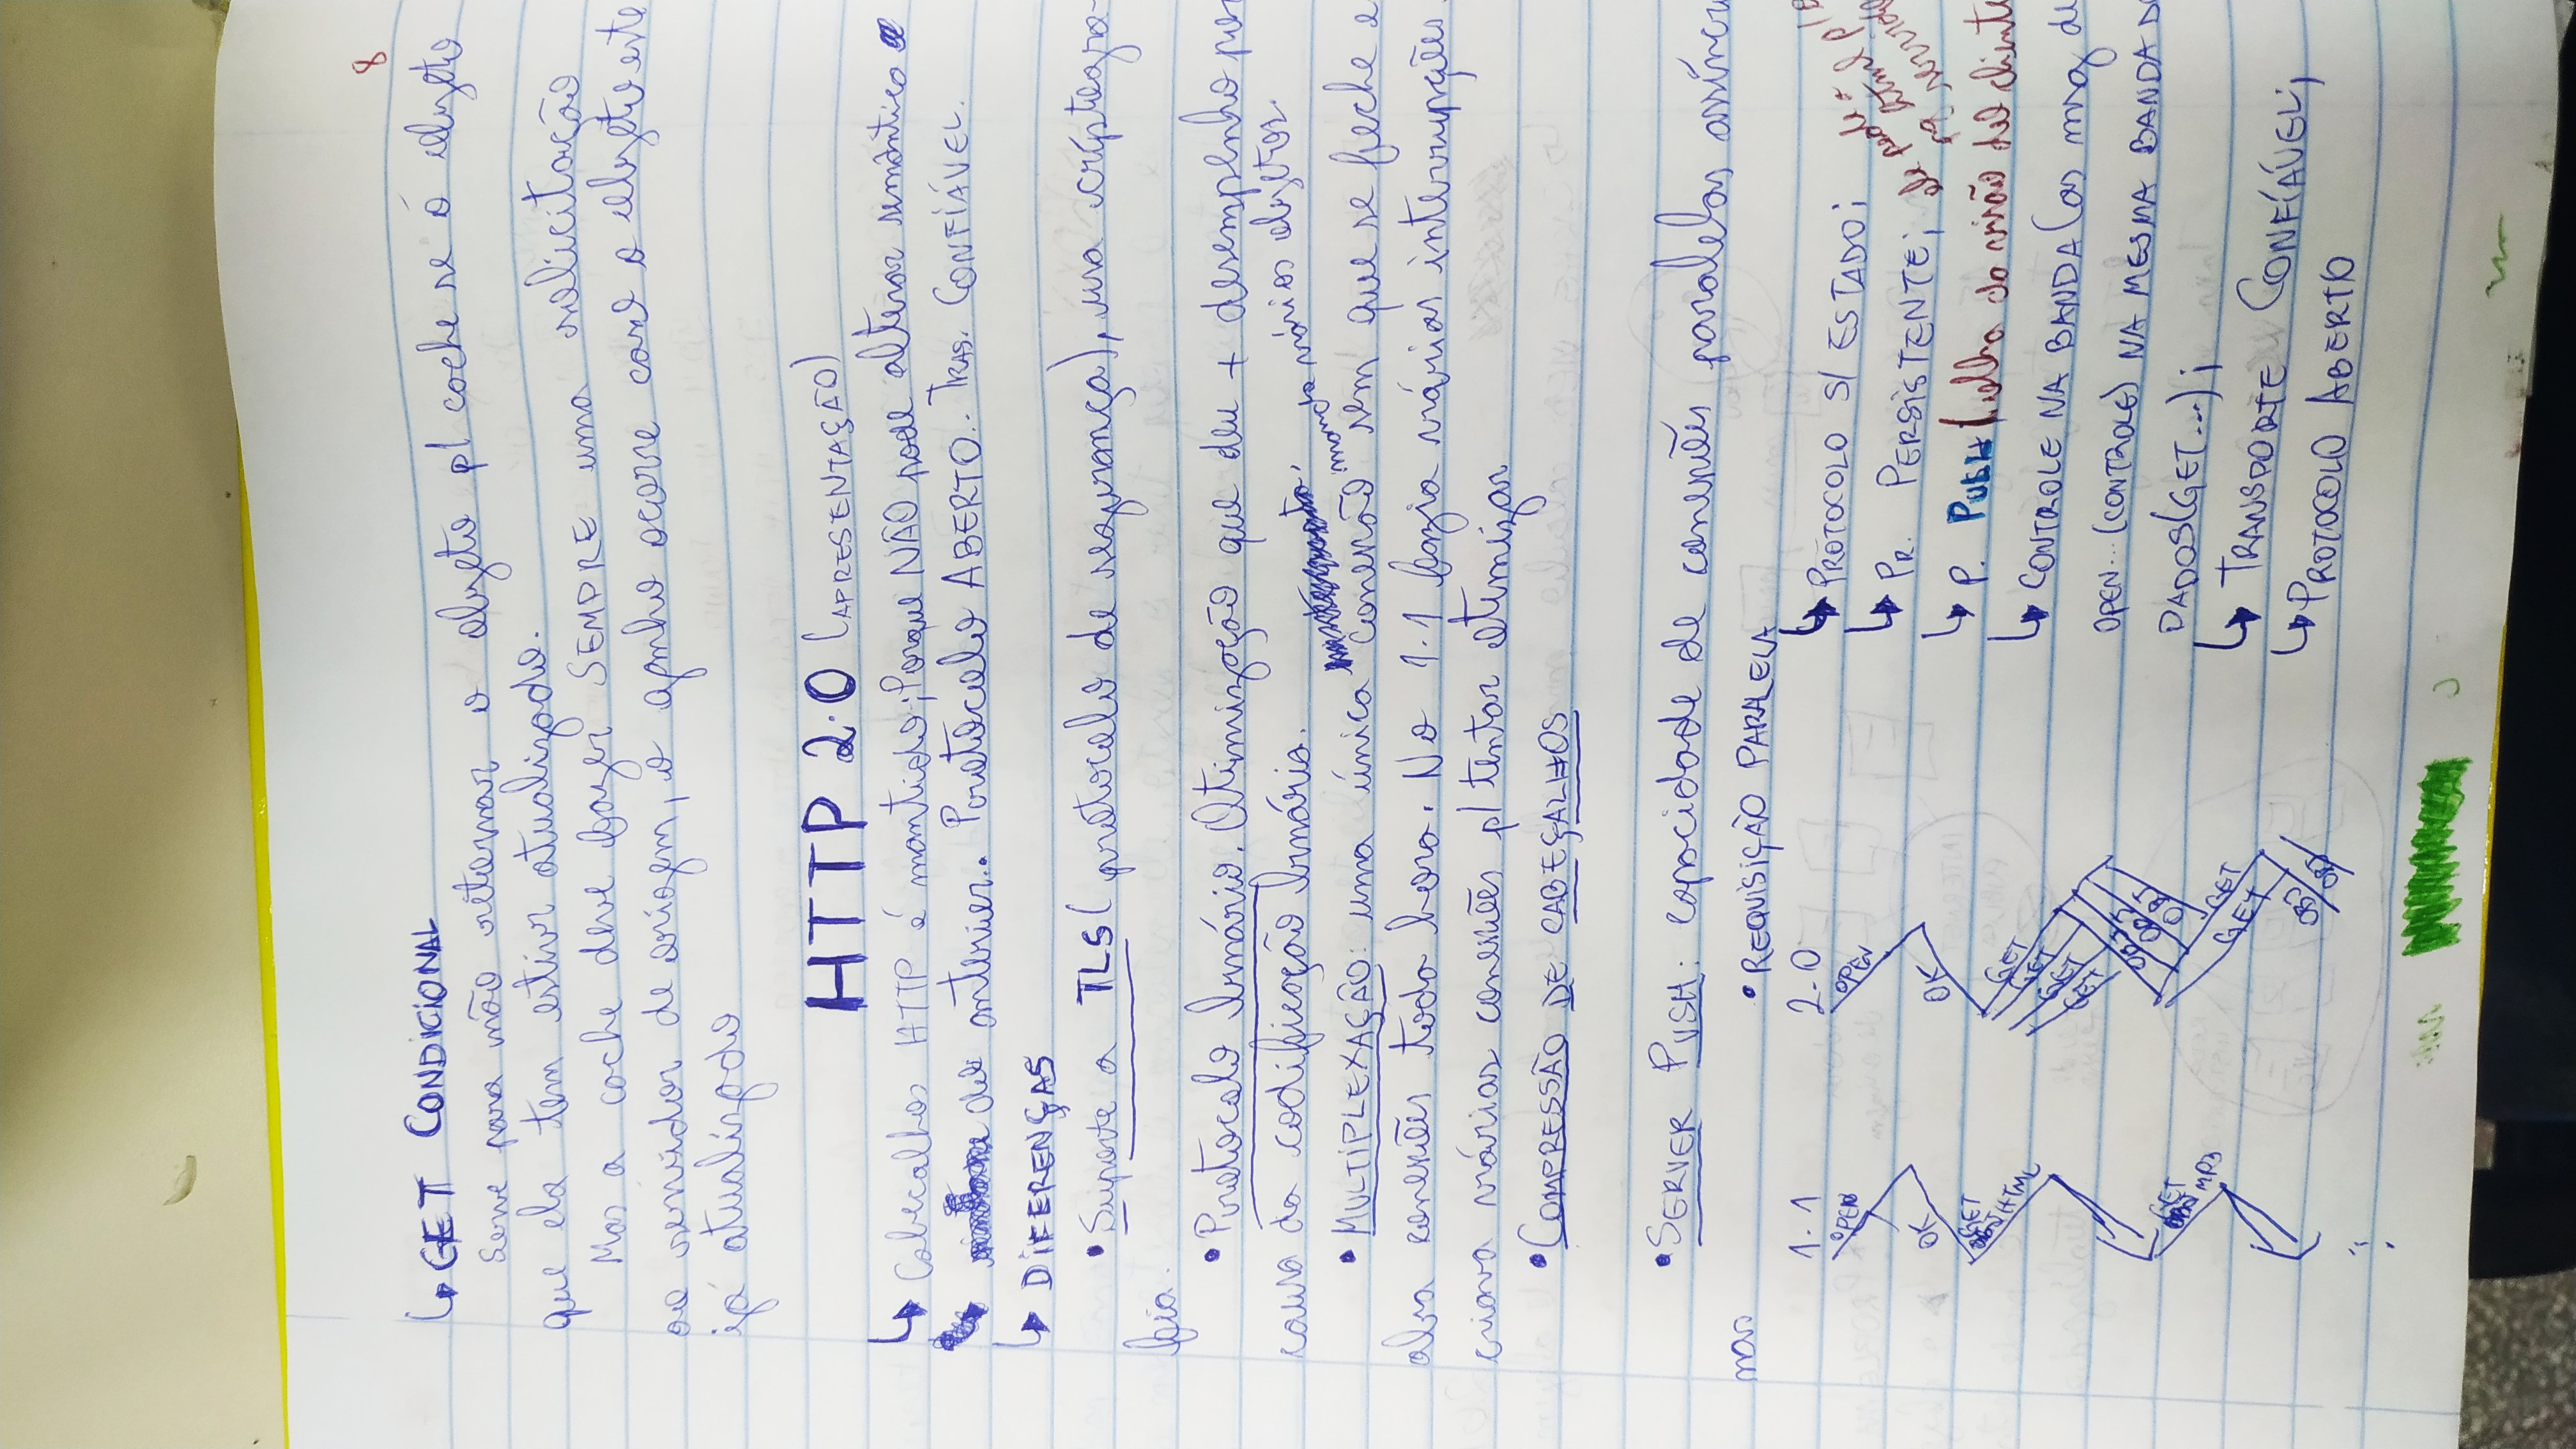 8
↳ GET CONDICIONAL
Serve para não retornar o objeto p/ cache se o objeto
que ela tem estiver atualizado.
Mas a cache deve fazer SEMPRE uma solicitação
ao servidor de origem, o ganho ocorre caso o objeto este
já atualizado
HTTP 2.0 (APRESENTAÇÃO)
↳ Cabecalhos HTTP é mantido; Porque NÃO pode alterar semântica
del anterior. Protocolo ABERTO. TRAS. CONFIÁVEL.
↳ DIFERENÇAS
• Suporte a TLS (protocolo de segurança), usa criptogra-
fia.
• Protocolo binário. Otimização que deu + desempenho por
causa da codificação binária.
manda vários objetos
• MULTIPLEXAÇÃO: uma única conexão sem que se feche e
abra conexões toda hora. No 1.1 fazia várias interrupções
criava várias conexões p/ tentar otimizar
• COMPRESSÃO DE CABEÇALHOS
• SERVER PUSH: capacidade de conexões paralelas assíncro
nas
• REQUISIÇÃO PARALELA
1.1 2.0
OPEN OPEN
OK OK
GET
HTML
GET
GET
GET
GET
OBJ
OBJ
OBJ
GET
MP3
GET
GET
OBJ
OBJ
↳ PROTOCOLO S/ ESTADO;
↳ PR. PERSISTENTE;
ele pede a
html p/
servido
↳ P. PUSH (olha da visão del cliente
↳ CONTROLE NA BANDA (as msg de
OPEN... (CONTROLE) NA MESMA BANDA DO
DADOS (GET...);
↳ TRANSPORTE CONFIÁVEL;
↳ PROTOCOLO ABERTO